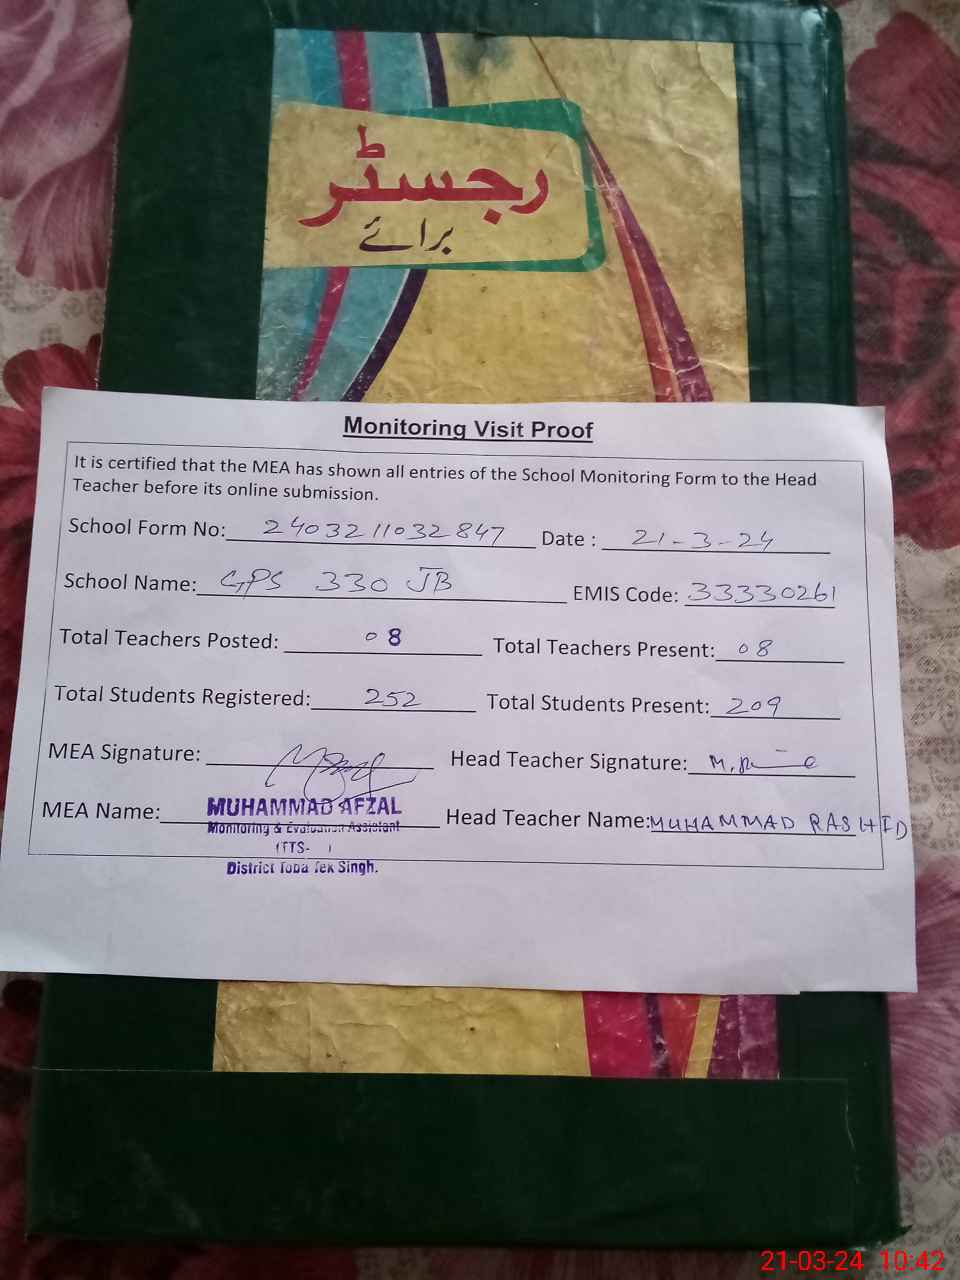 رجسٹر
برائے
Monitoring Visit Proof
It is certified that the MEA has shown all entries of the School Monitoring Form to the Head
Teacher before its online submission.
School Form No: 2403211032847 Date : 21-3-24
School Name: GPS 330 JB EMIS Code: 33330261
Total Teachers Posted: 08 Total Teachers Present: 08
Total Students Registered: 252 Total Students Present: 209
MEA Signature: Head Teacher Signature:
MEA Name: MUHAMMAD AFZAL Head Teacher Name: MUHAMMAD RASHID
Monitoring & Evaluation Assistant
(TTS- )
District Toba Tek Singh.
21-03-24 10:42